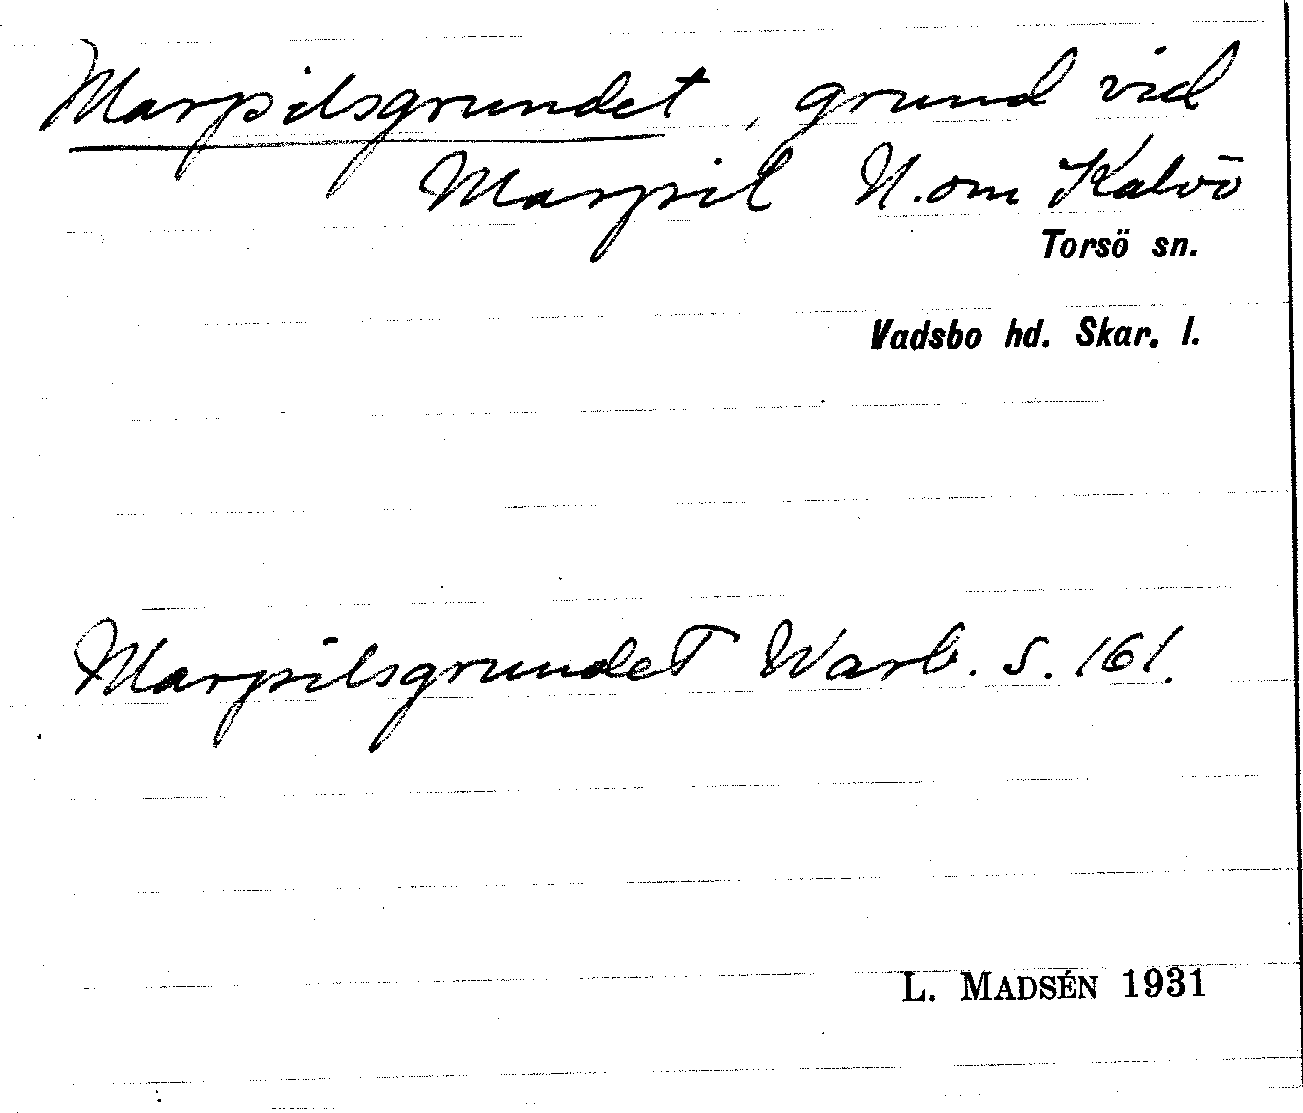 Marpilsgrundet, grund vid
Marpil N. om Kalvö
Torsö sn.
Vadsbo hd. Skar. l.
Marpilsgrundet Warb. S. 161.
L. MADSÉN 1931